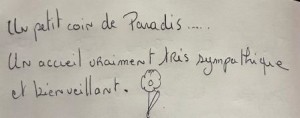 Un petit coin de Paradis.....
Un accueil vraiment très sympathique
et bienveillant.